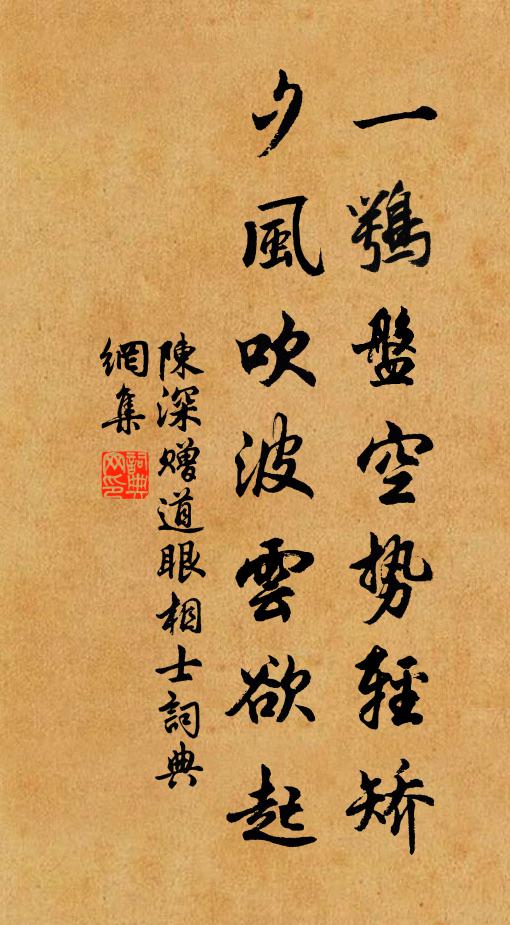 一鶚盤空势輕矯
夕風吹波雲欲起
陳深贈道眼相士詞典
網集
詞典网印